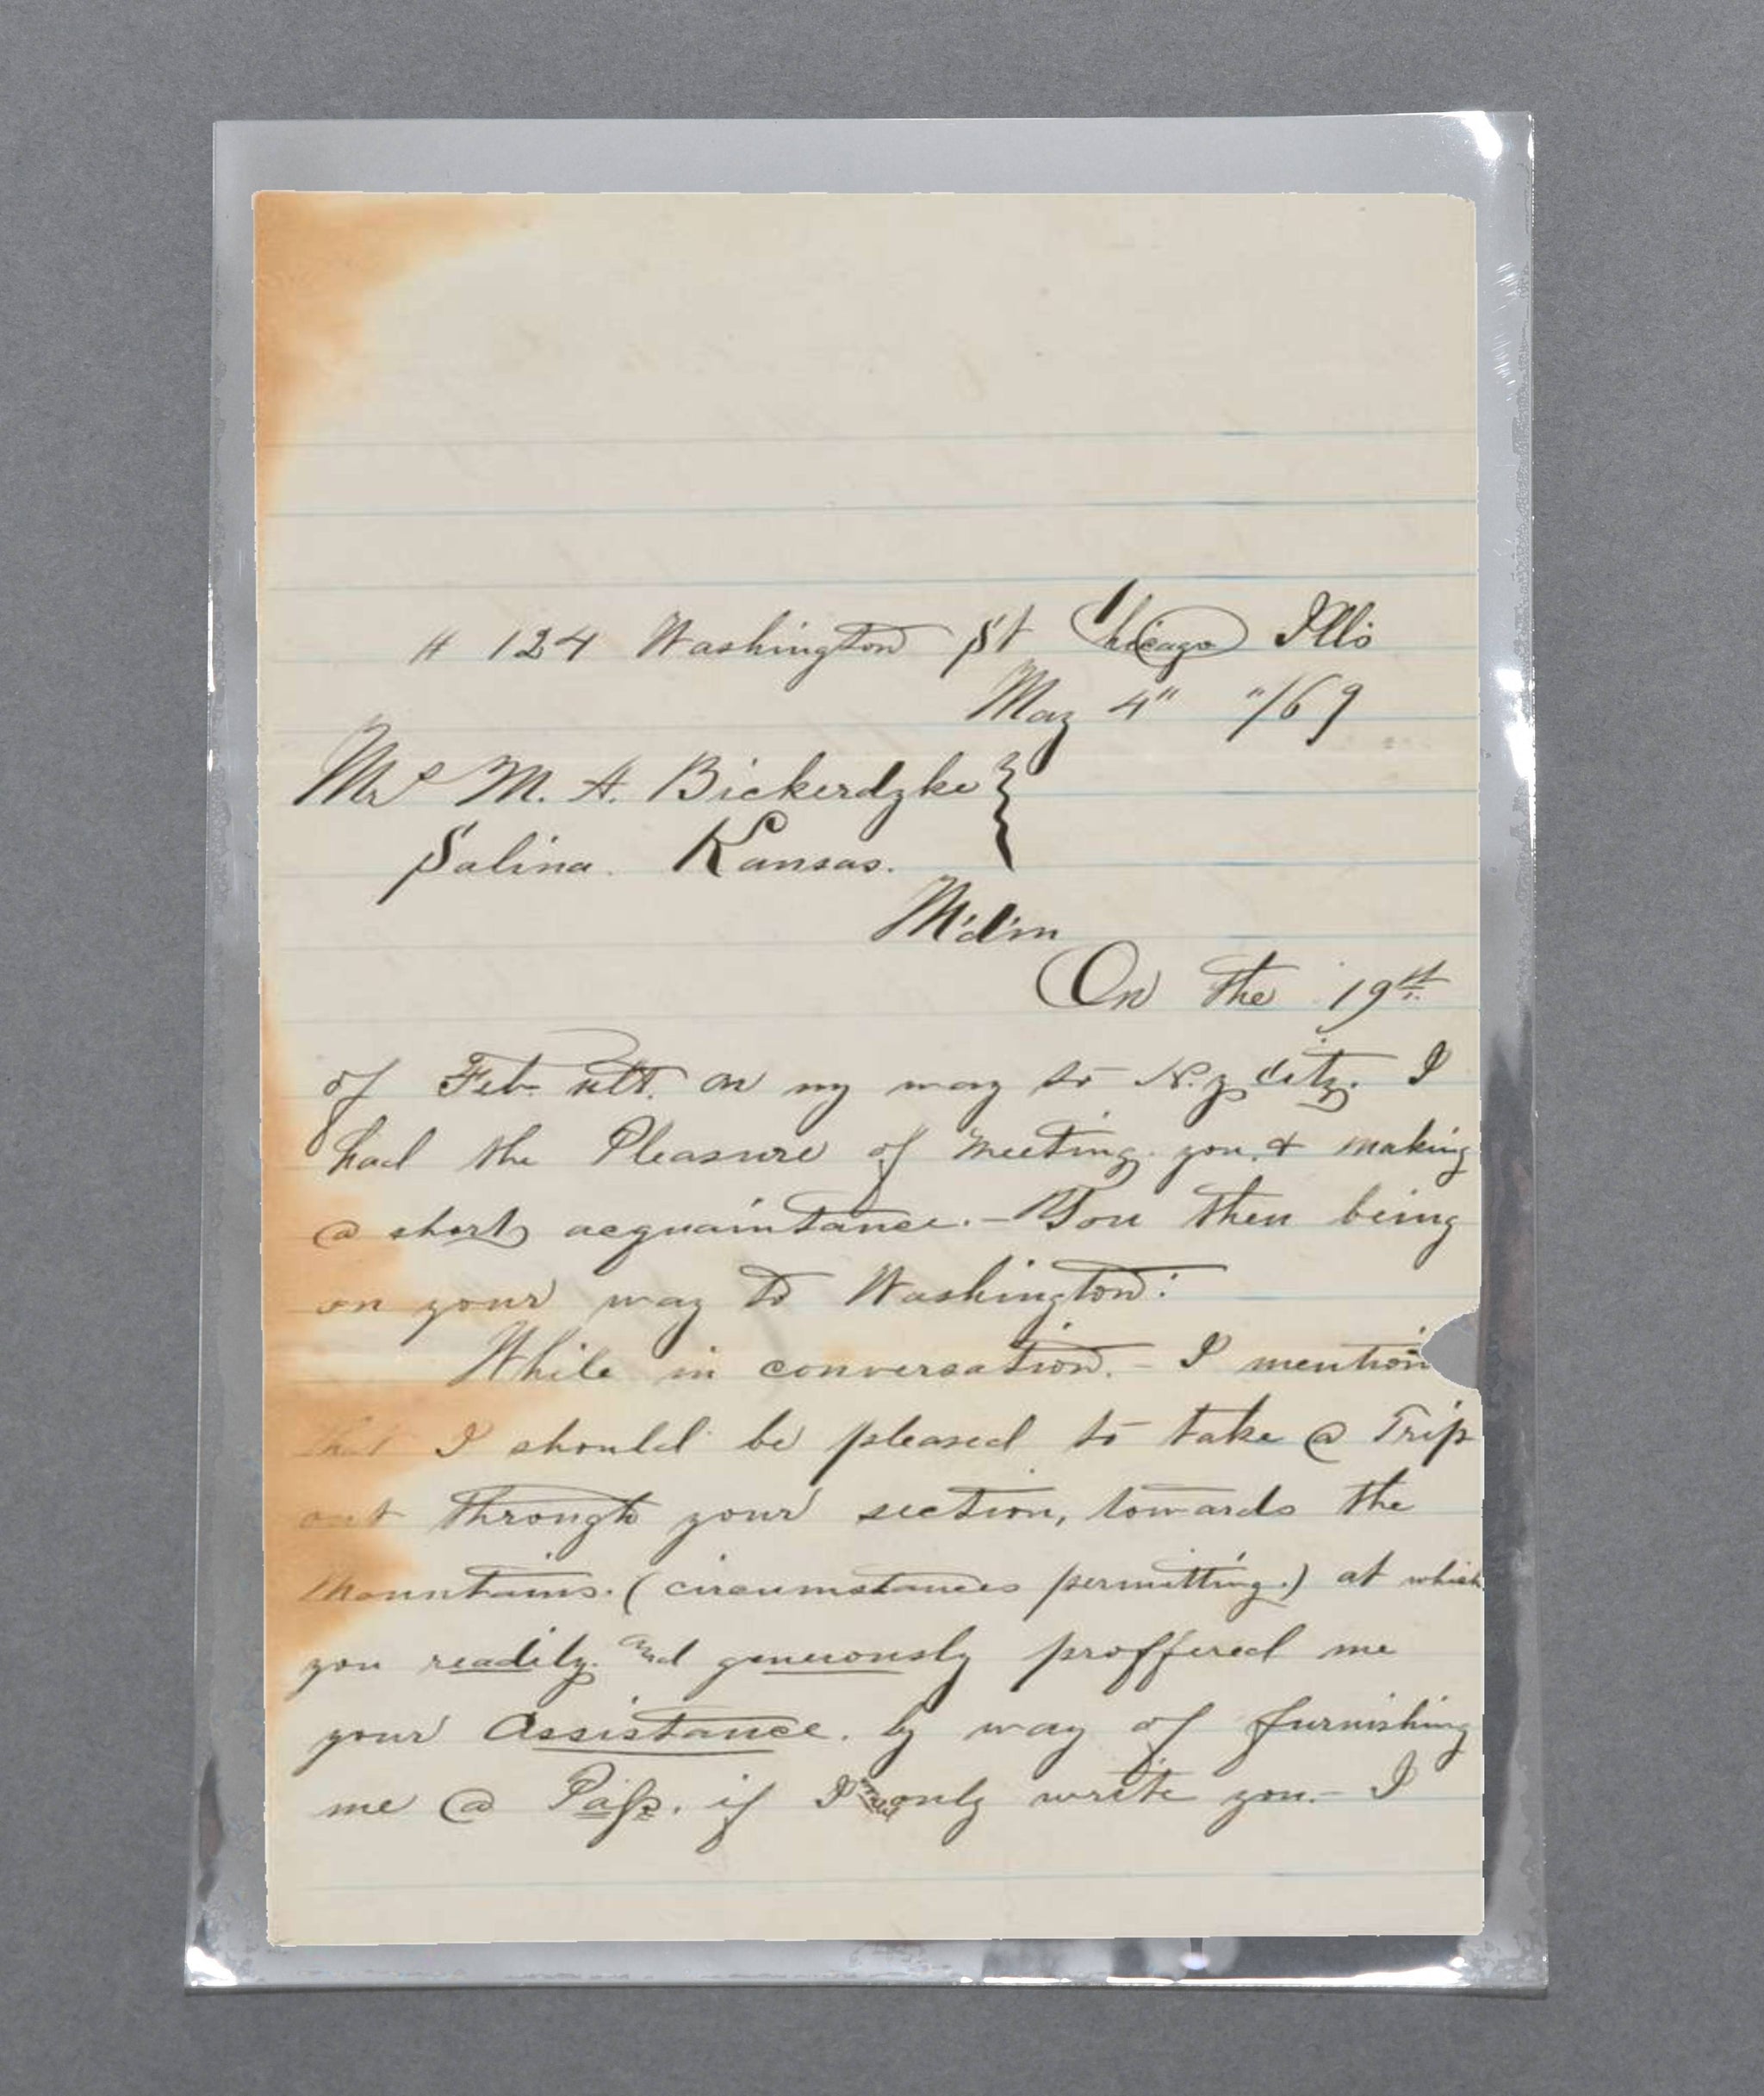 # 124 Washington St Chicago Ills
May 4" "/69
Mrs M. A. Bickerdyke
Salina. Kansas.
M'd'm
On the 19th
of Feb. ult. on my way to N.y city. I
had the Pleasure of meeting you, & making
a short acquaintance. - You then being
on your way to Washington:
While in conversation. - I mention
that I should be pleased to take a Trip
out through your section, towards the
Mountains. (circumstances permitting.) at which
you readily. and generously proffered me
your Assistance. by way of furnishing
me a Pass. if I only write you. - I